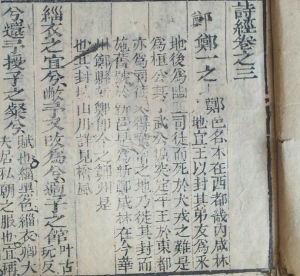 詩經卷之三
鄭一之
鄭邑名本在西都畿內咸林
之地宣王以封其弟友為采
地後為幽王司徒而死於犬戎之難是
為桓公其子武公掘突定平王於東都
亦為司徒又得虢檜之地乃徙其封而
施舊號於新邑是為新鄭咸林在今華
州鄭縣新鄭即今之鄭州是
也其封域山川詳見檜風
緇衣之宜兮敝予又改為兮適子之館叶古玩反
兮還予授子之粲兮賦也緇黑色緇衣卿大
夫居私朝之服也宜稱